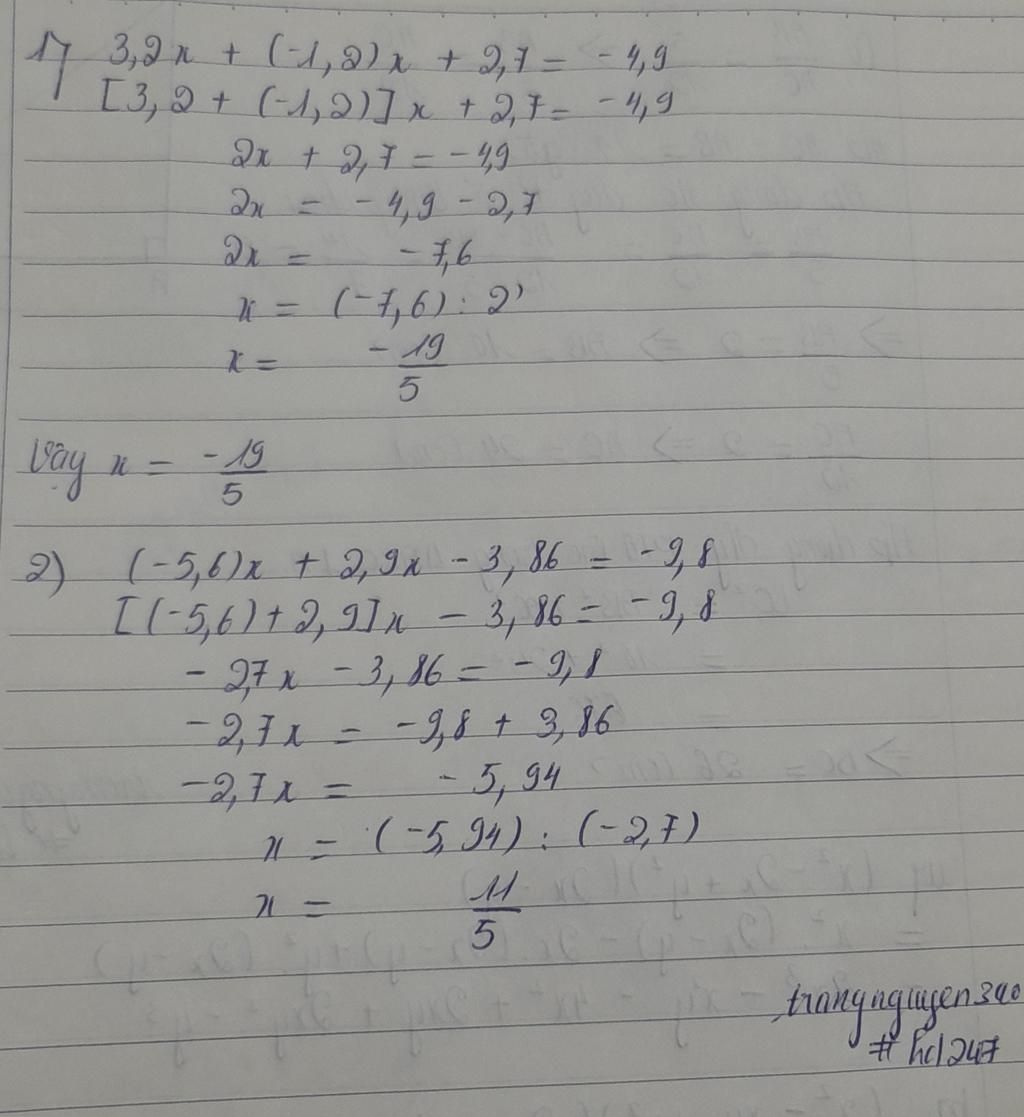 1) 3,2x + (-1,2)x + 2,7 = -4,9
[3,2 + (-1,2)]x + 2,7 = -4,9
2x + 2,7 = -4,9
2x = -4,9 - 2,7
2x = -7,6
x = (-7,6) : 2
x = -19/5
Vậy x = -19/5
2) (-5,6)x + 2,9x - 3,86 = -9,8
[(-5,6) + 2,9]x - 3,86 = -9,8
-2,7x - 3,86 = -9,8
-2,7x = -9,8 + 3,86
-2,7x = -5,94
x = (-5,94) : (-2,7)
x = 11/5
trangnguyen340
#hd247